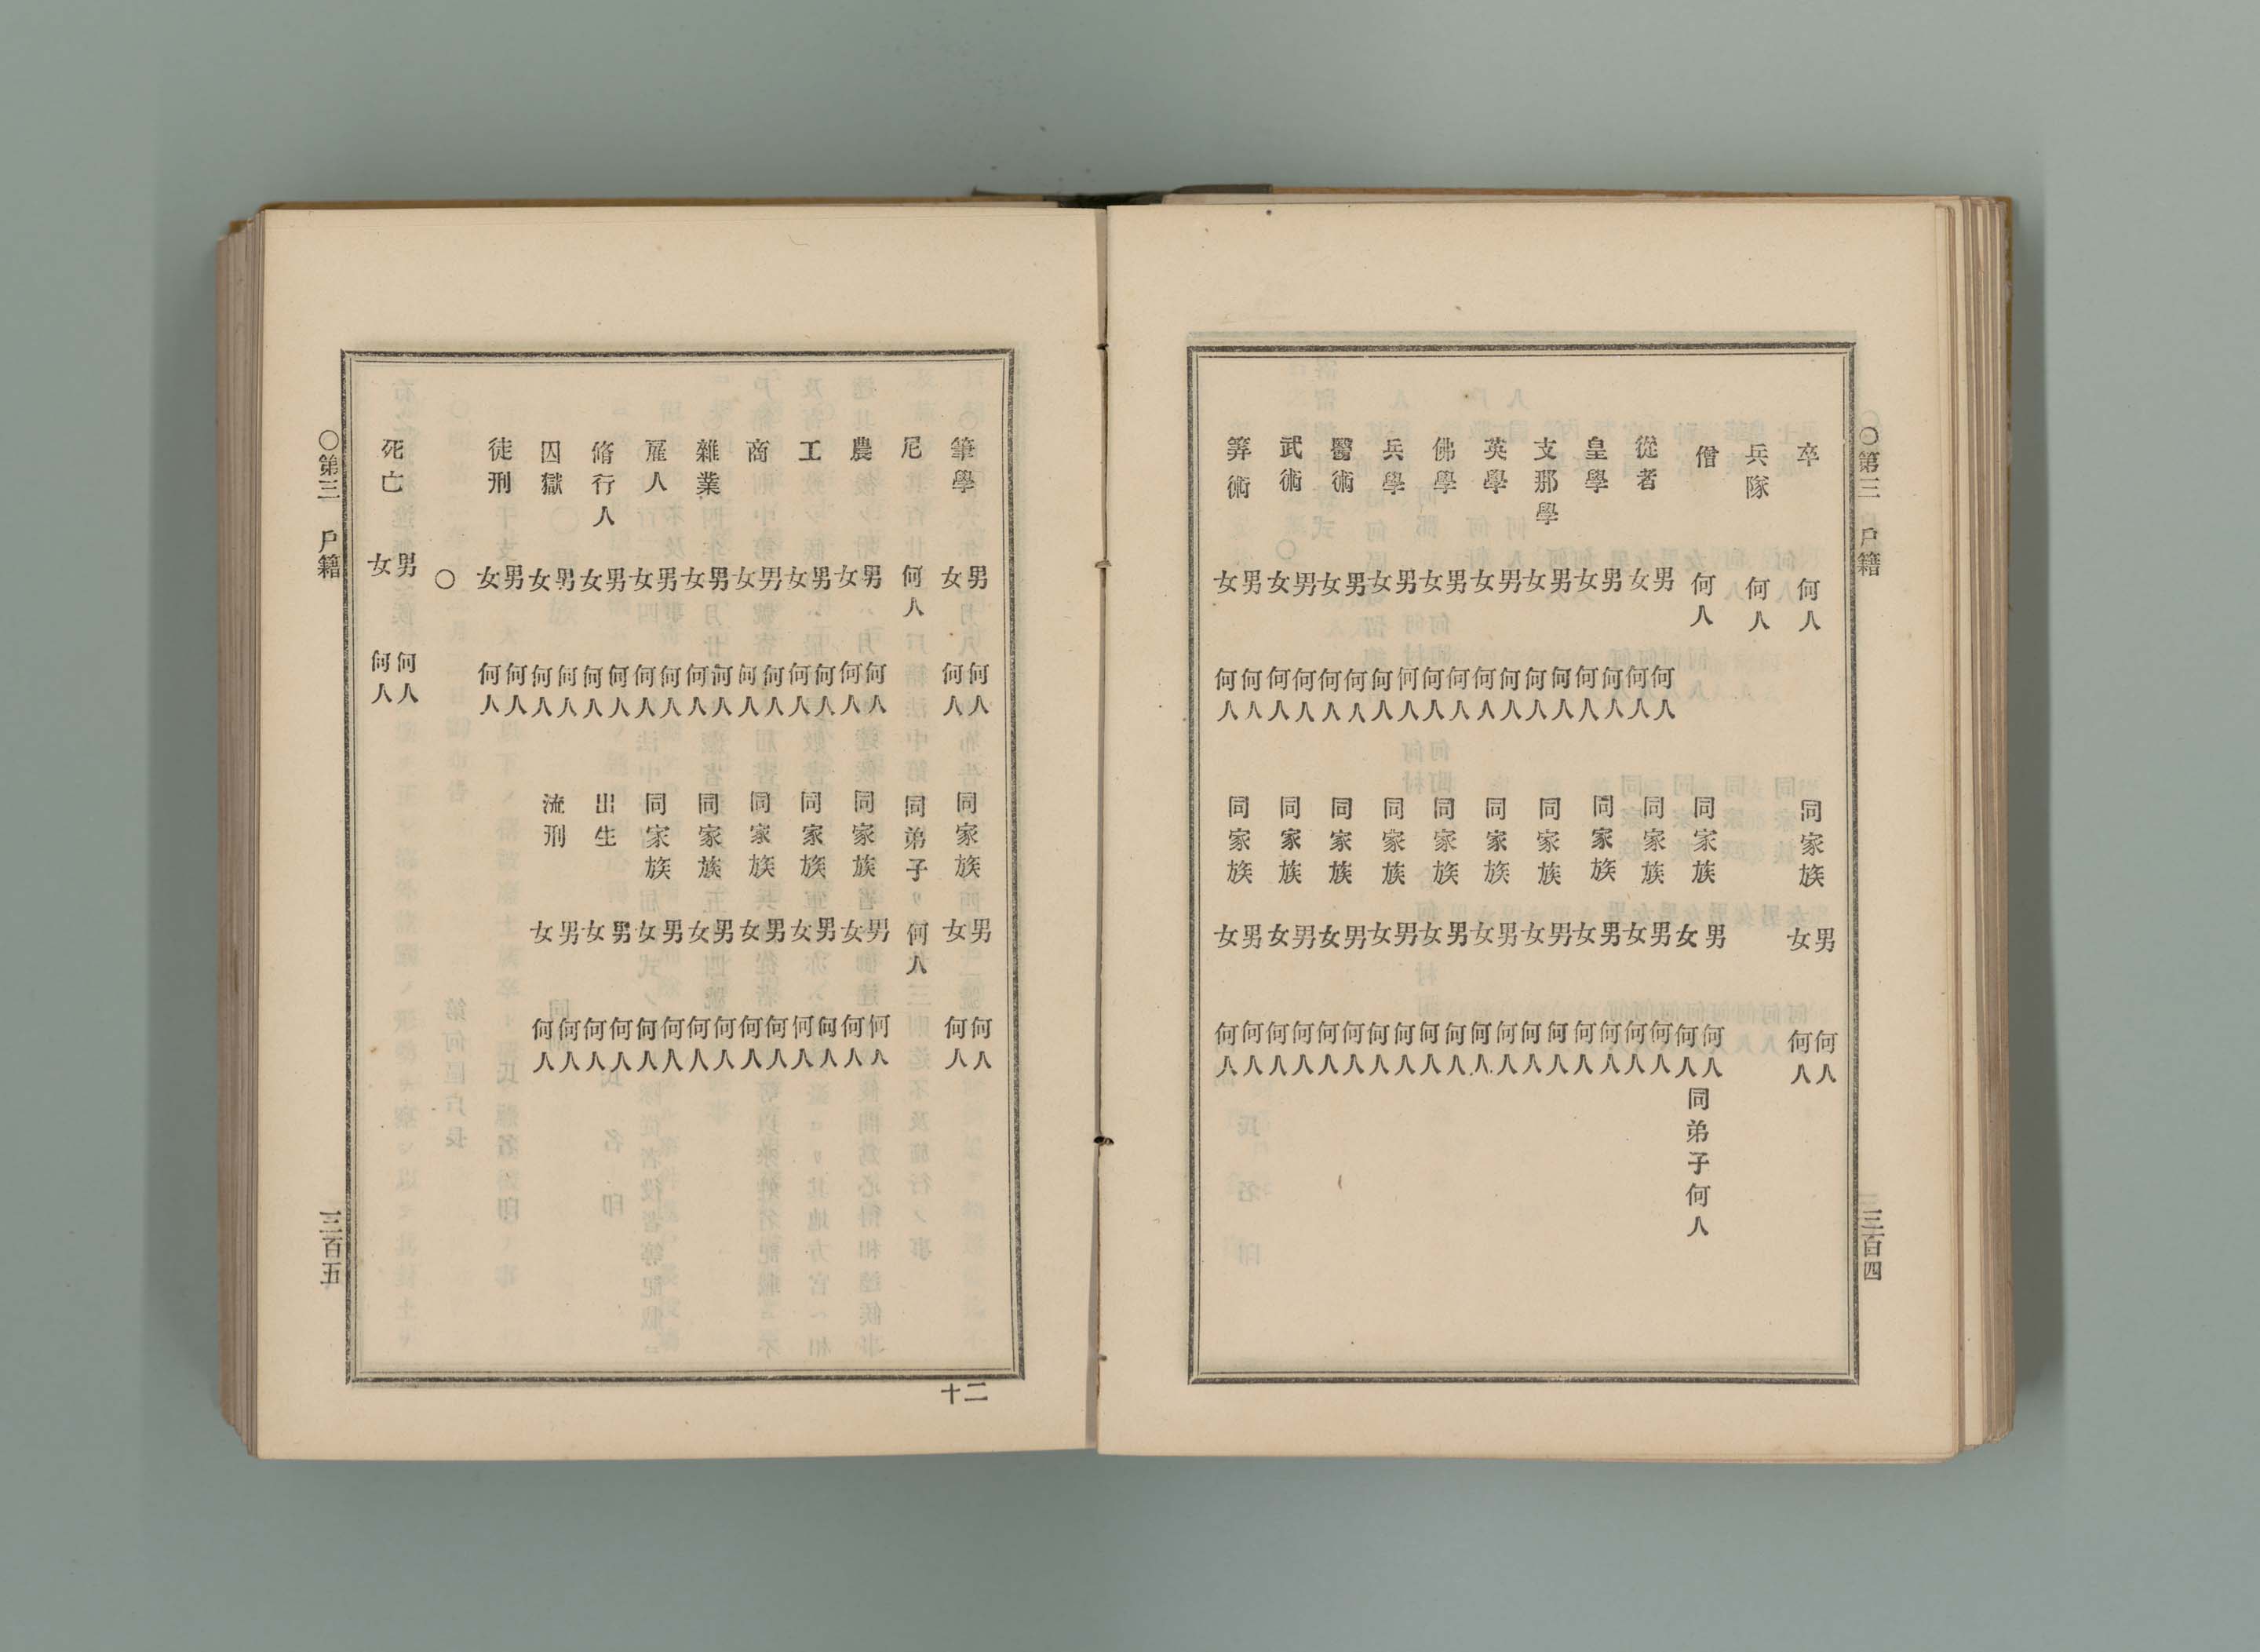 〇第三　戸籍
三百四
卒　何人　同家族　男何人　女何人
兵隊　何人
僧　何人　同家族　男何人　女何人　同弟子何人
從者　男何人　女何人　同家族　男何人　女何人
皇學　男何人　女何人　同家族　男何人　女何人
支那學　男何人　女何人　同家族　男何人　女何人
英學　男何人　女何人　同家族　男何人　女何人
佛學　男何人　女何人　同家族　男何人　女何人
兵學　男何人　女何人　同家族　男何人　女何人
醫術　男何人　女何人　同家族　男何人　女何人
武術　男何人　女何人　同家族　男何人　女何人
筭術　男何人　女何人　同家族　男何人　女何人
筆學　男何人　女何人　同家族　男何人　女何人
尼　何人　同弟子　何人
農　男何人　女何人　同家族　男何人　女何人
工　男何人　女何人　同家族　男何人　女何人
商　男何人　女何人　同家族　男何人　女何人
雜業　男何人　女何人　同家族　男何人　女何人
雇人　男何人　女何人　同家族　男何人　女何人
脩行人　男何人　女何人　出生　男何人　女何人
囚獄　男何人　女何人　流刑　男何人　女何人
徒刑　男何人　女何人
〇
死亡　男何人　女何人
〇第三　戸籍
三百五
十二